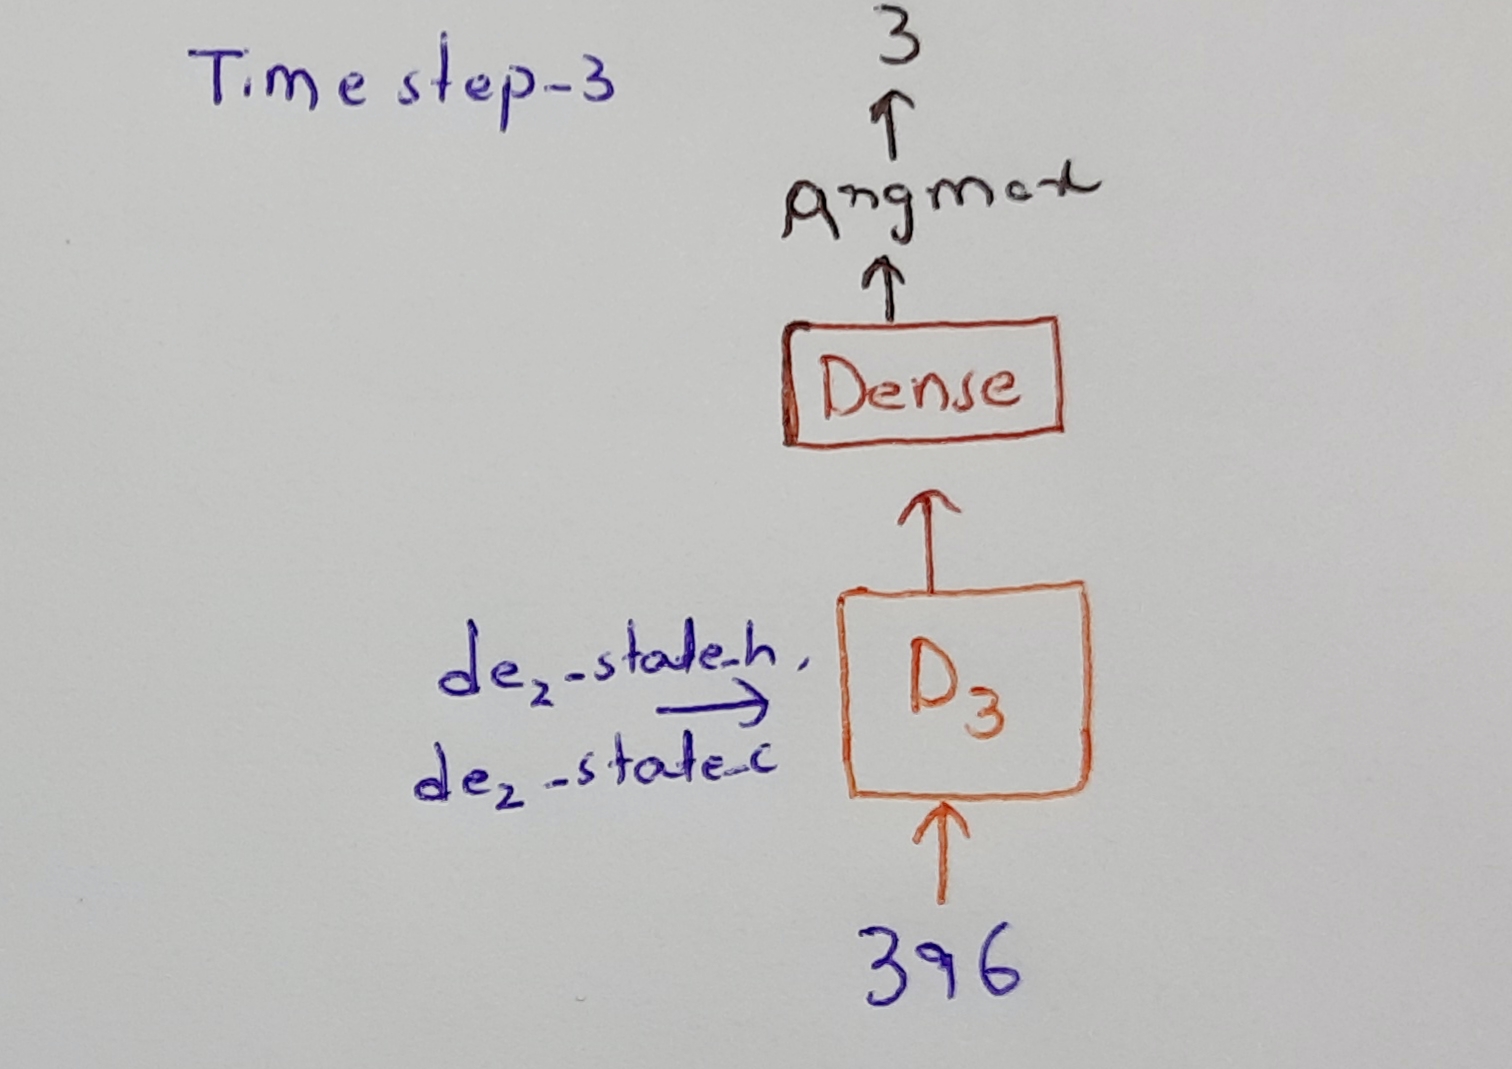 Time step-3
3
Argmax
Dense
de2-state-h,
D3
de2-state-c
396